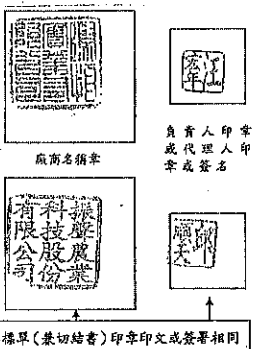 江
宏年
廠商名稱章
負責人印章
或代理人印
章或簽名
振聲農業
科技股份
有限公司
標單(兼切結書)印章印文或簽署相同